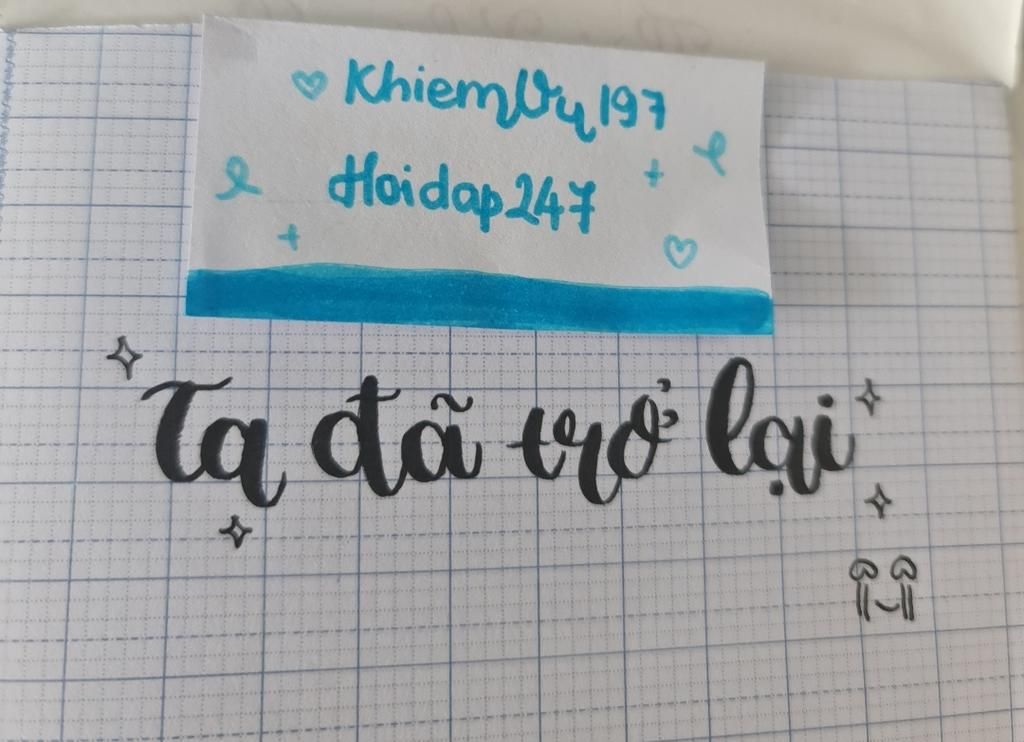 KhiemVu197
Hoidap247
Ta đã trở lại